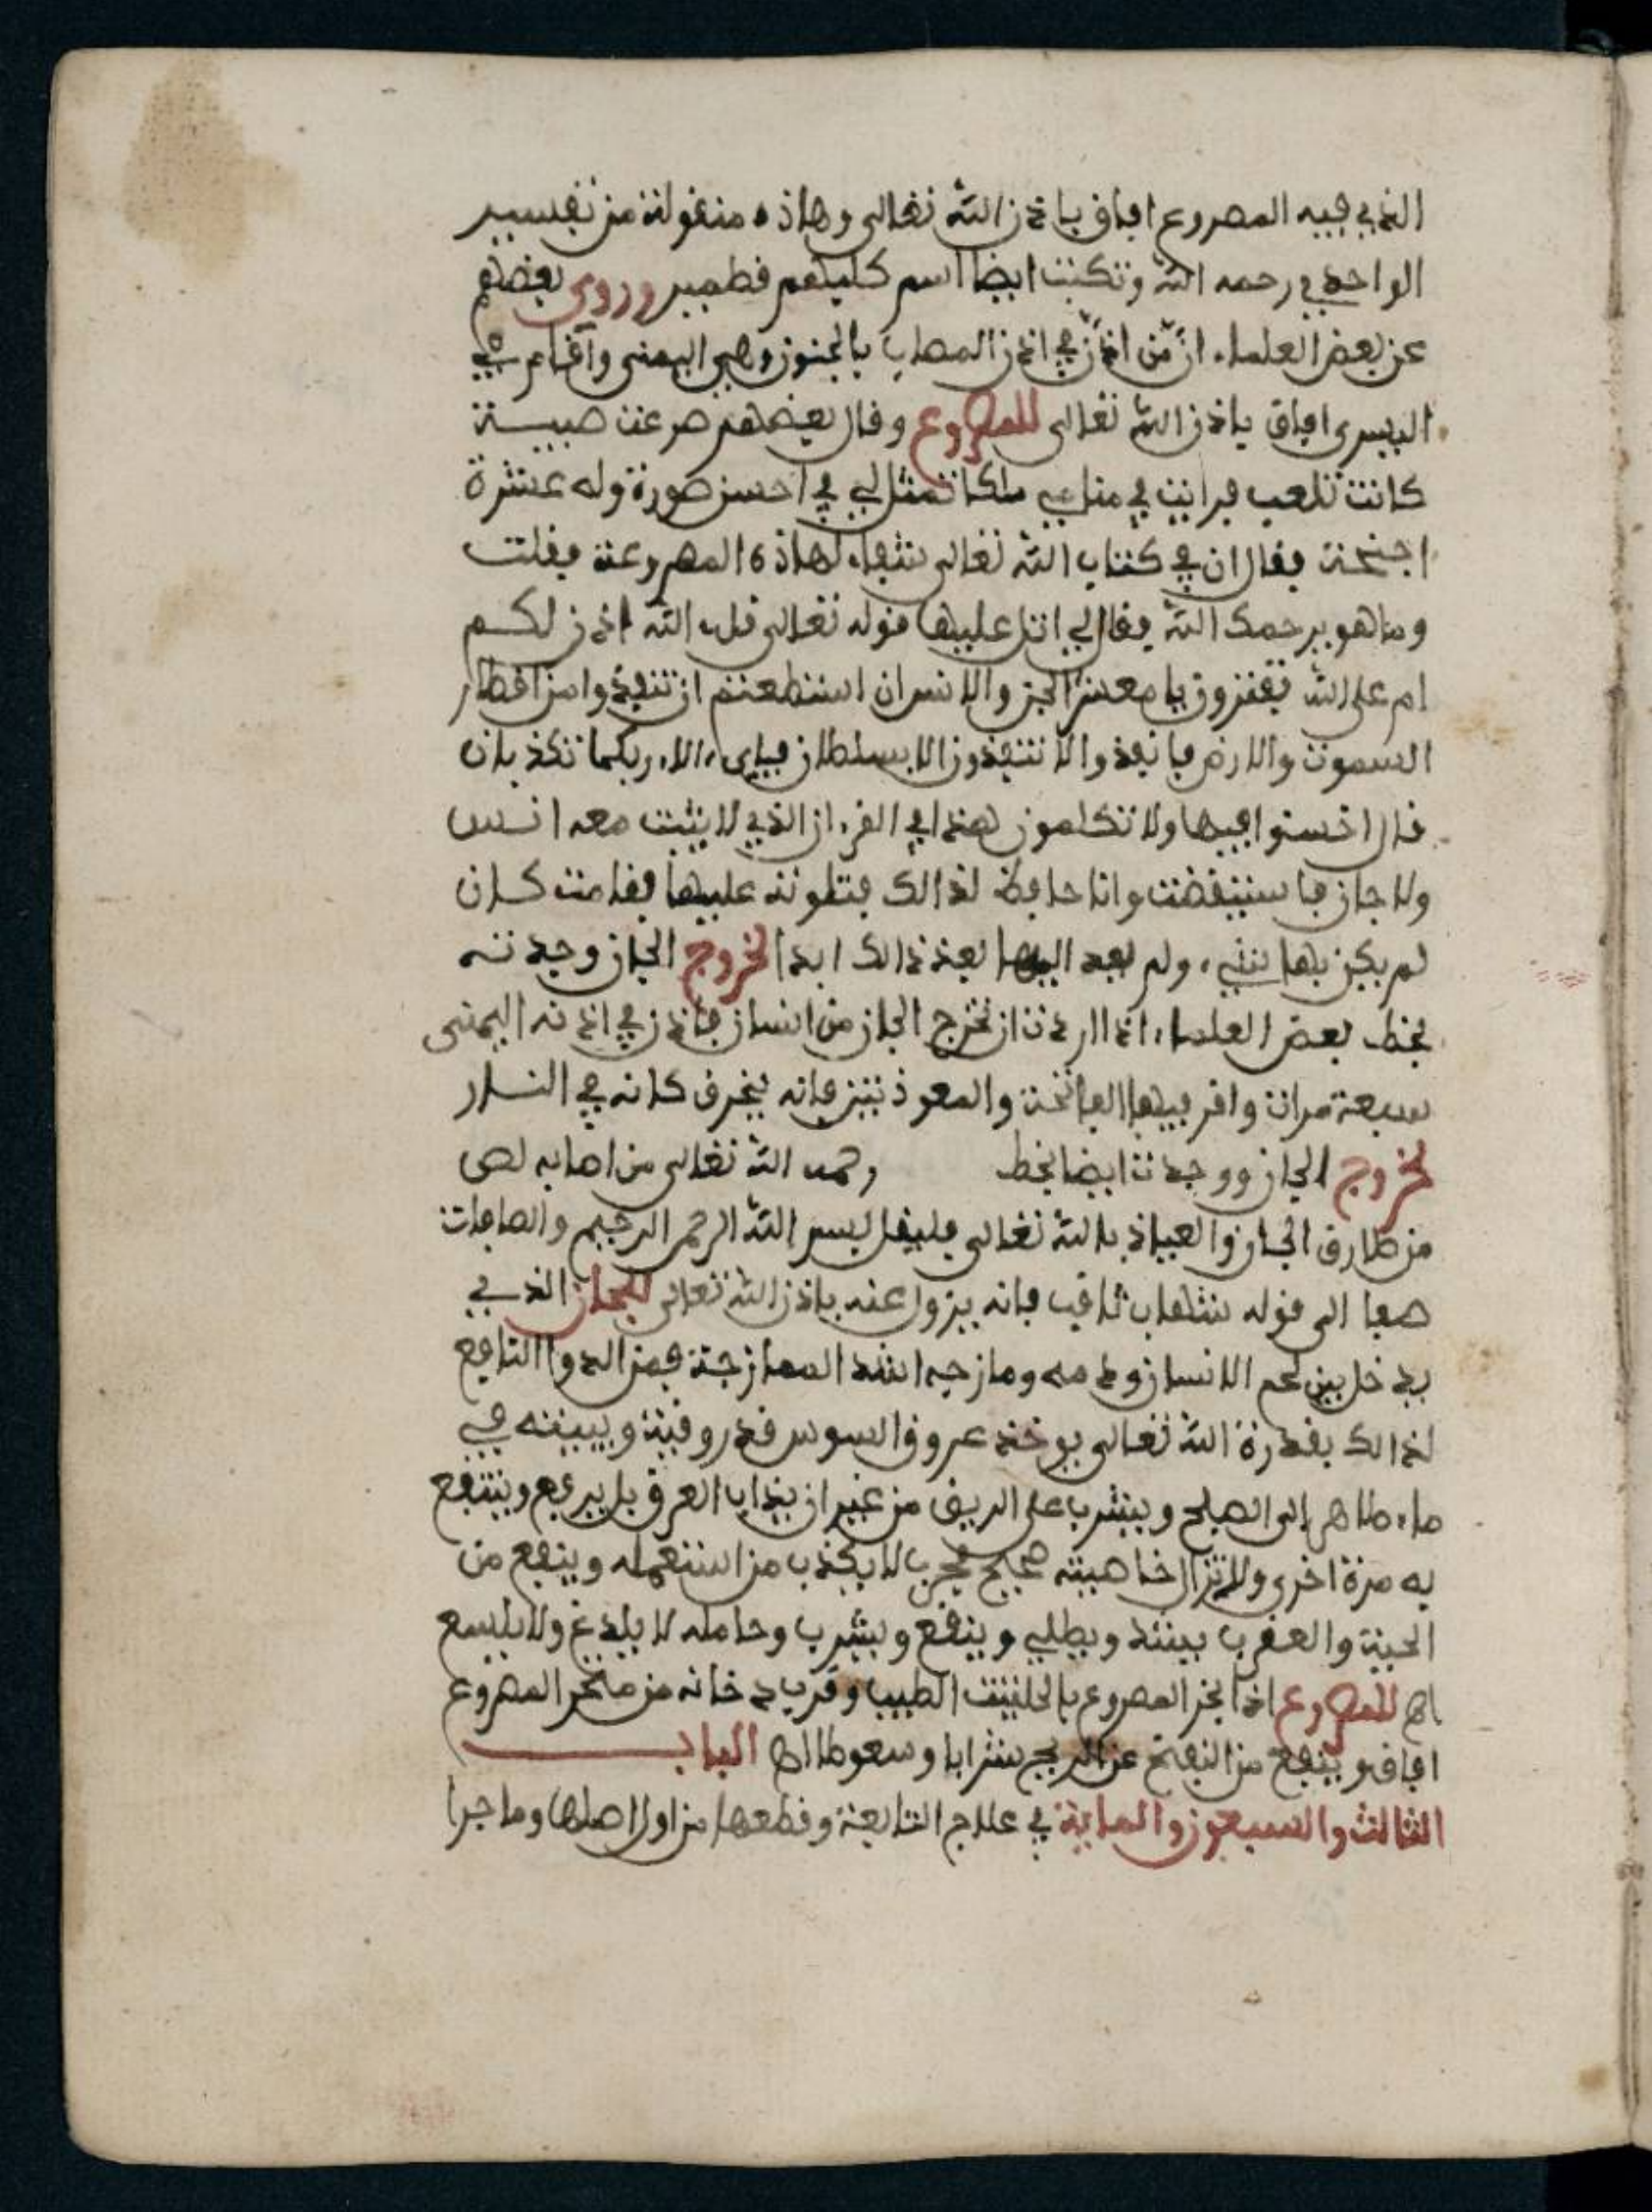 الذي فيه المصروع افاق باذن الله تعالى وهاذه منقولة من تفسير
الواحدي رحمه الله وتكتب ايضا اسم كلبهم قطمير وروى بعضهم
عن بعض العلماء ان من اذن في اذن المصاب بالجنون وهي اليمنى واقام في
اليسرى افاق باذن الله تعالى للمصروع وقال بعضهم صرعت صبية
كانت تلعب فرايت في منامي ملكا تمثل لي في احسن صورة وله عشرة
اجنحة فقال ان في كتاب الله تعالى شفاء لهاذه المصروعة فقلت
وما هو يرحمك الله فقال لي اتل عليها قوله تعالى قل ءالله اذن لكم
ام على الله تفترون يا معشر الجن والانس ان استطعتم ان تنفذوا من اقطار
السموت والارض فانفذوا لا تنفذون الا بسلطان فباي ءالاء ربكما تكذبان
قال اخسئوا فيها ولا تكلمون هذا في القرءان الذي لا يثبت معه انس
ولا جان فاستيقضت وانا حافظ لذالك فتلوته عليها فقامت كان
لم يكن بها شيء ولم يعد اليها بعد ذالك ابدا لخروج الجان وجدته
بخط بعض العلماء اذا اردت ان تخرج الجان من انسان فاذن في اذنه اليمنى
سبعة مرات واقر فيها الفاتحة والمعوذتين فانه يخرق كانه في النار
لخروج الجان ووجدت ايضا بخط رحمه الله تعالى من اصابه لص
من طارق الجان والعياذ بالله تعالى فليقل بسم الله الرحمن الرحيم والصافات
صفا الى قوله شهاب ثاقب فانه يزول عنه باذن الله تعالى للجان الذي
يدخل بين لحم الانسان ودمه ومازحيه اشد الممازجة فمن الدوا النافع
لذالك بقدرة الله تعالى يوخذ عروق السوس قدر وقية ويبيته في
ماء طاهر الى الصباح ويشرب على الريق من غير ان يذاب العرق بل يرفع وينتفع
به مرة اخرى ولا تزال خاصيته صحيح مجرب لا يكذب من استعمله وينفع من
الحية والعقرب بيشد ويطلى وينفع ويشرب وحامله لا يلدغ ولا يلسع
اه للمصروع اذا بخر المصروع بالحلتيت الطيب وقرب دخانه من منخر المصروع
افاق وينفع من النفخ عن الريح شرابا وسعوطا اه الباب
الثالث والسبعون والماية في علاج التابعة وقطعها من اول اصلها وما جرا